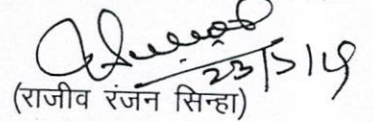 23/5/19
(राजीव रंजन सिन्हा)